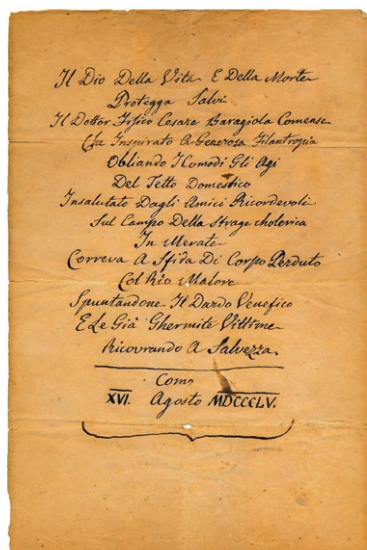 Il Dio Della Vita E Della Morte
Protegga Salvi
Il Dottor Fisico Cesare Baragiola Comense
Che Inspirato A Generosa Filantropia
Obliando I Comodi Gli Agi
Del Tetto Domestico
Insalutate Dagli Amici Ricordevoli
Sul Campo Della Strage Cholerica
In Merate
Correva A Sfida Di Corpo Perduto
Col Rio Malore
Spuntandone Il Dardo Venefico
E Le Già Ghermite Vittime
Ricovrando A Salvezza
Como
XVI. Agosto MDCCCLV.